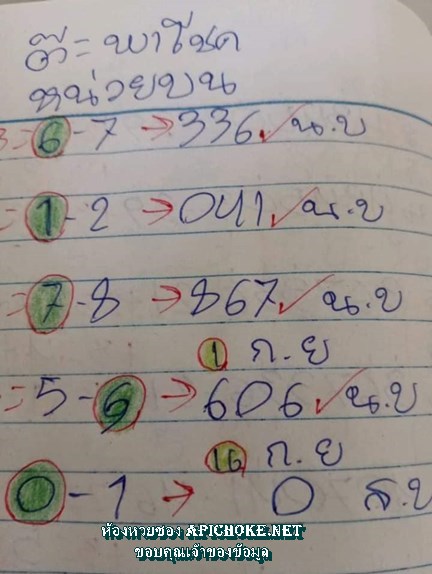 อ๊ะ = พาโชค
หน่วยบน
3 = 6 - 7 → 336 ✓ น.บ
= 1 - 2 → 041 ✓ น.บ
= 7 - 8 → 867 ✓ น.บ
1 ก.ย
= 5 - 6 → 606 ✓ น.บ
16 ก.ย
0 - 1 → 0 ส.บ
ห้องหวยซอง APICHOKE.NET
ขอบคุณเจ้าของข้อมูล